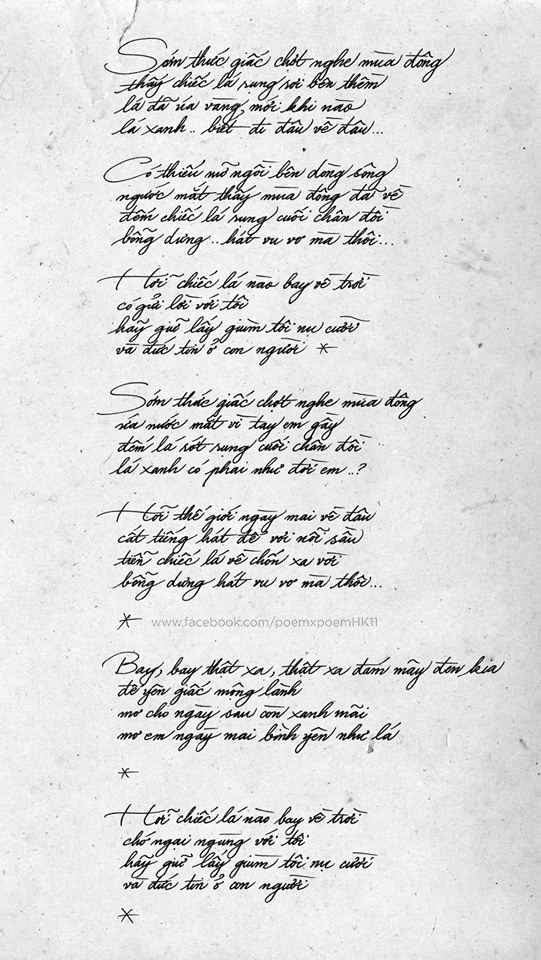 Sớm thức giấc chợt nghe mùa đông
thấy chiếc lá rung rơi bên thềm
lá đã úa vàng mỗi khi nao
lá xanh.. biết đi đâu về đâu...
Có thiếu nữ ngồi bên dòng sông
ngước mắt thấy mùa đông đã về
đếm chiếc lá rung cuối chân đồi
bỗng dưng.. hát vu vơ mà thôi...
Hỡi chiếc lá nào bay về trời
có gửi lời với tôi
hãy giữ lấy giùm tôi nụ cười
và đức tin ở con người *
Sớm thức giấc chợt nghe mùa đông
ứa nước mắt vì tay em gầy
đếm lá sót rung cuối chân đồi
lá xanh có phai như đời em..?
Hỡi thế giới ngày mai về đâu
cất tiếng hát để vơi nỗi sầu
tiễn chiếc lá về chốn xa vời
bỗng dưng hát vu vơ mà thôi...
*
www.facebook.com/poemxpoemHK11
Bay, bay thật xa, thật xa đám mây đen kia
để yên giấc mộng lành
mơ cho ngày sau còn xanh mãi
mơ em ngày mai bình yên như lá
*
Hỡi chiếc lá nào bay về trời
chớ ngại ngùng với tôi
hãy giữ lấy giùm tôi nụ cười
và đức tin ở con người
*